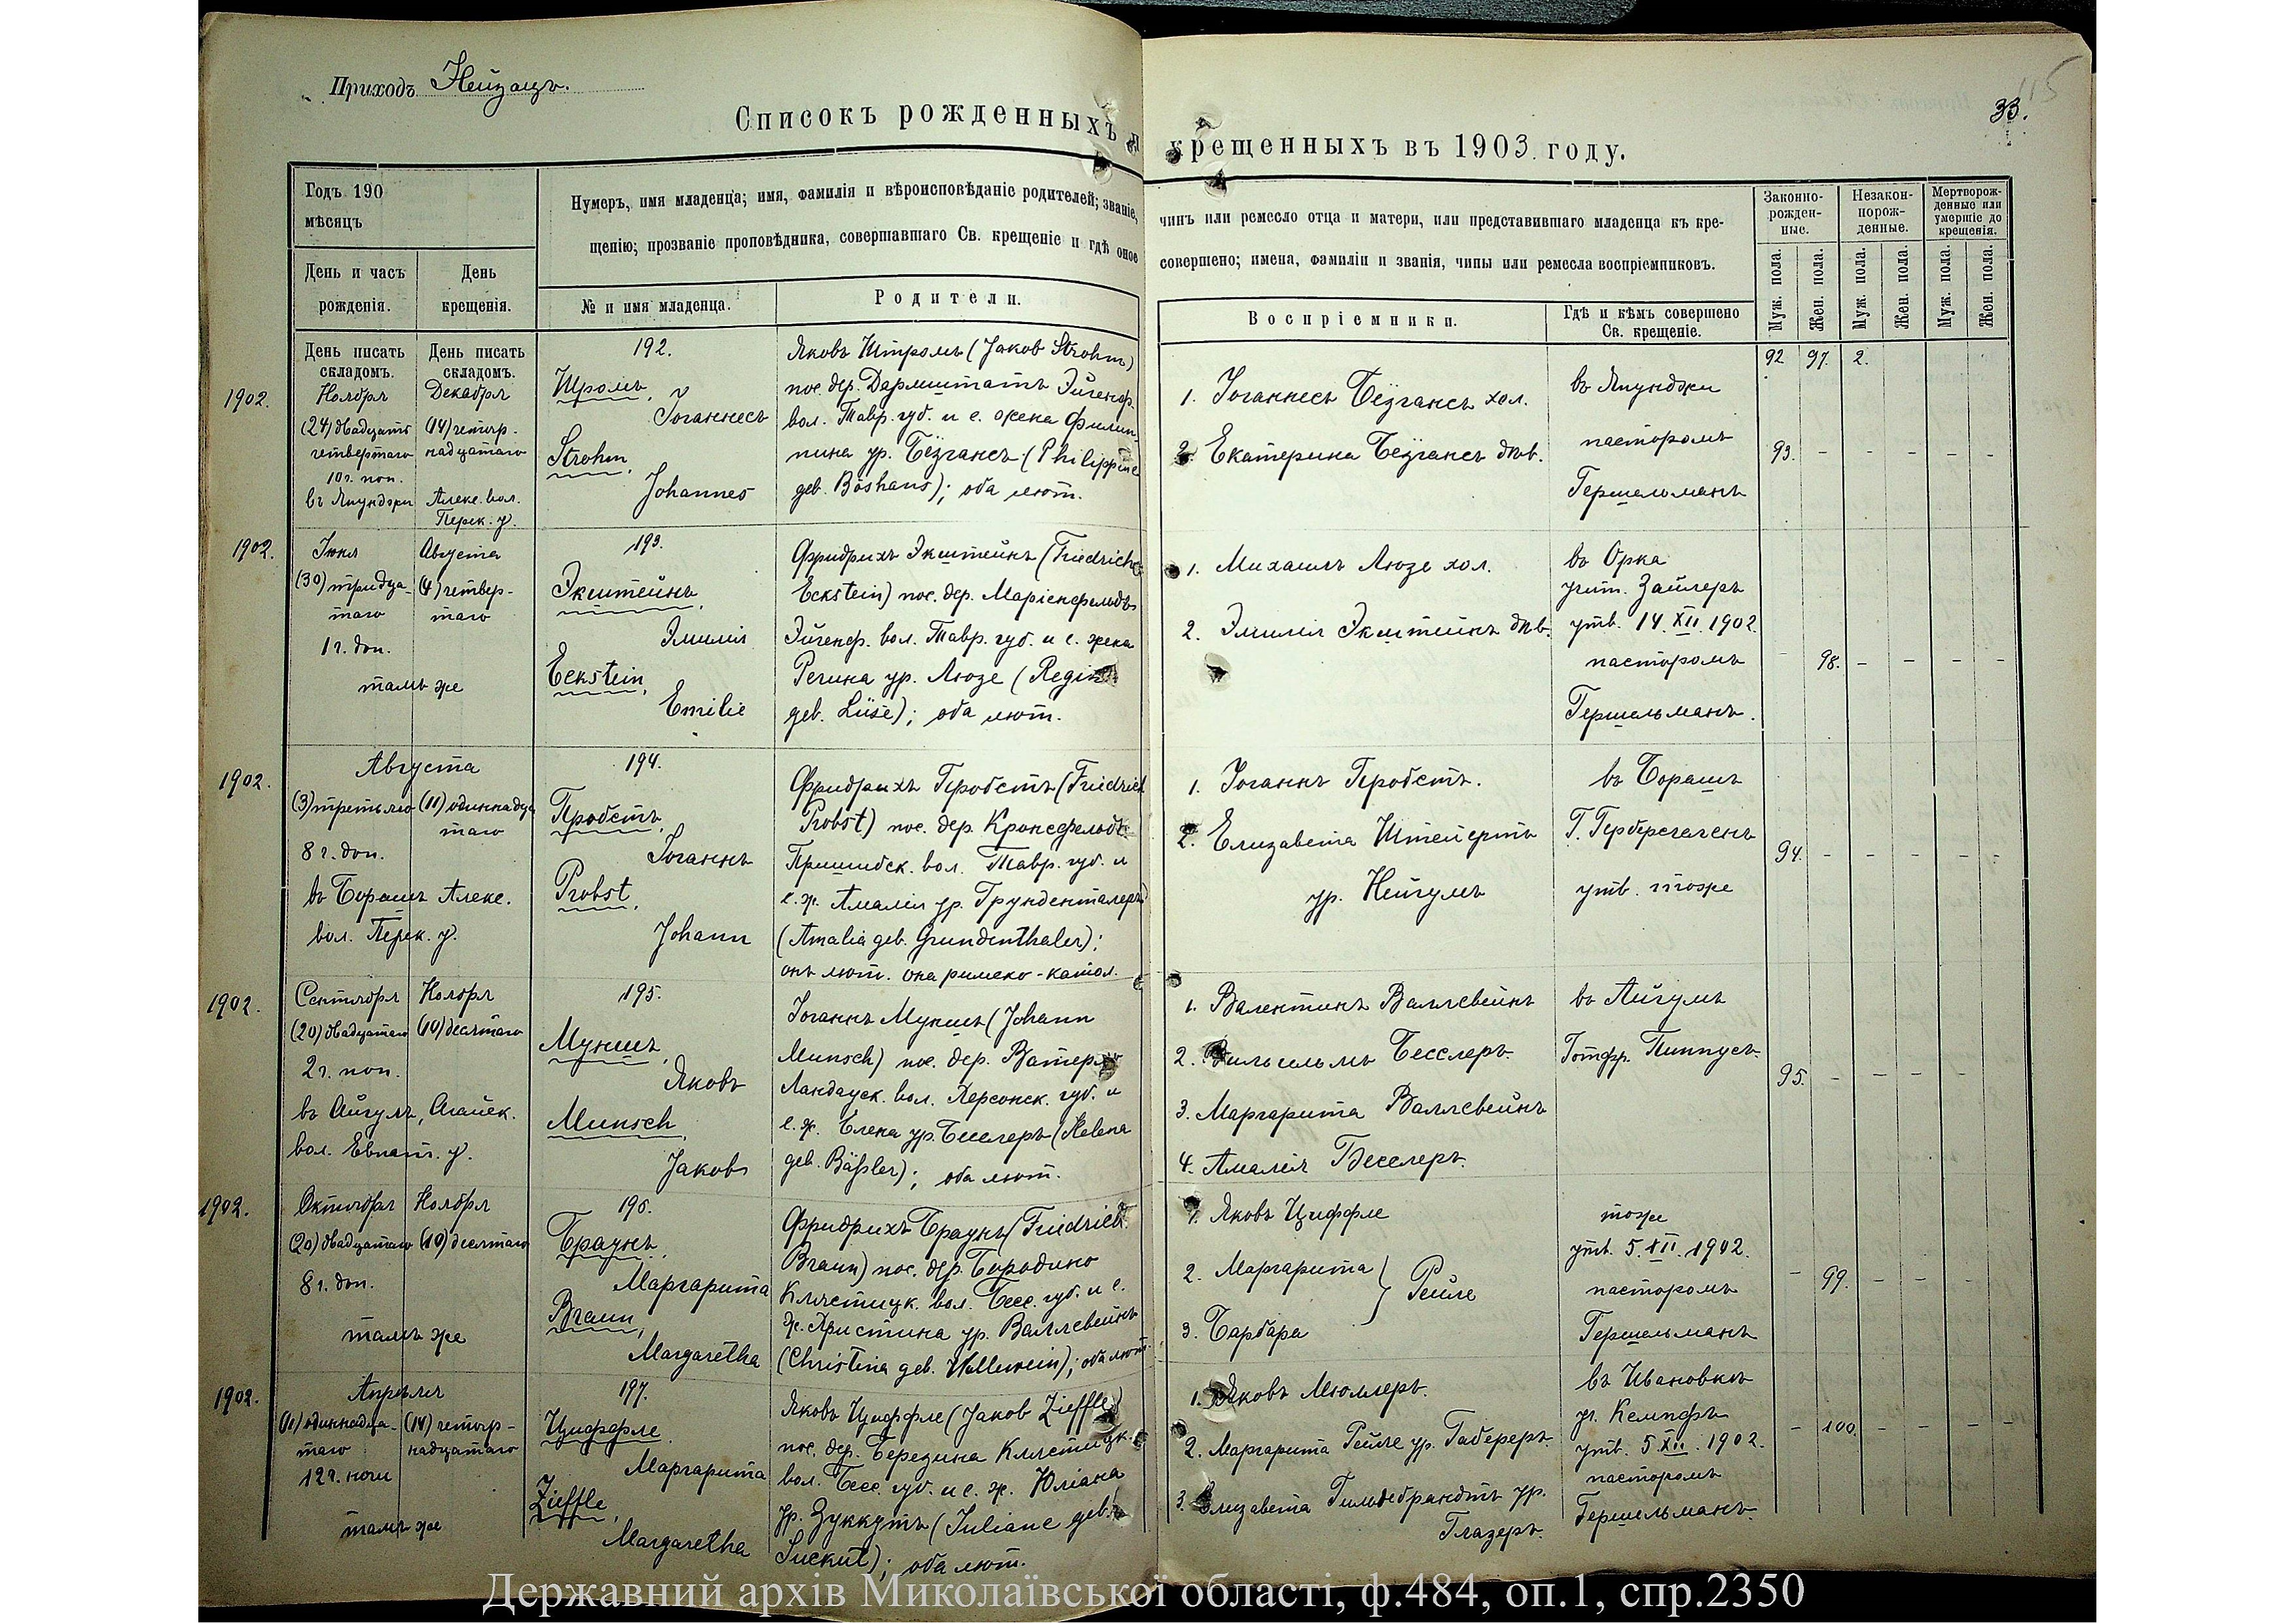 Приходъ Нейзацъ.
115
33.
Списокъ рожденныхъ и крещенныхъ въ 1903 году.
Годъ 190
мѣсяцъ
День и часъ
рожденія.
День
крещенія.
Нумеръ, имя младенца; имя, фамилія и вѣроисповѣданіе родителей; званіе,
щенію; прозваніе проповѣдника, совершавшаго Св. крещеніе и гдѣ оное
№ и имя младенца.
Родители.
чинъ или ремесло отца и матери, или представившаго младенца къ кре-
совершено; имена, фамиліи и званія, чины или ремесла воспріемниковъ.
Воспріемники.
Гдѣ и кѣмъ совершено
Св. крещеніе.
Законно-
рожден-
ные.
Незакон-
норож-
денные.
Мертворож-
денные или
умершіе до
крещенія.
Муж. пола.
Жен. пола.
Муж. пола.
Жен. пола.
Муж. пола.
Жен. пола.
День писать
складомъ.
День писать
складомъ.
92 97. 2.
1902.
Ноября
(24) двадцать
четвертаго
10 ч. поп.
въ Япунджи
Декабря
(14) четыр-
надцатаго
Алекс. вол.
Перек. у.
192.
Штромъ,
Іоганнесъ
Strohm,
Johannes
Яковъ Штромъ (Jakob Strohm)
пос. дер. Дармштатъ Эйгенф.
вол. Тавр. губ. и с. жена Филип-
пина ур. Бёзгансъ (Philippine
geb. Böshans); оба лют.
1. Іоганнесъ Бёзгансъ хол.
2. Екатерина Бёзгансъ дѣв.
въ Япунджи
пасторомъ
Гершельманъ
93. - - - - -
1902.
Іюля
(30) тридца-
таго
1 ч. доп.
Августа
(4) четвер-
таго
тамъ же
193.
Экштейнъ,
Эмилія
Eckstein,
Emilie
Фридрихъ Экштейнъ (Friedrich
Eckstein) пос. дер. Маріенфельдъ
Эйгенф. вол. Тавр. губ. и с. жена
Регина ур. Люзе (Regina
geb. Lüse); оба лют.
1. Михаилъ Люзе хол.
2. Эмилія Экштейнъ дѣв.
въ Орка
учит. Зайлеръ
утв. 14. XII. 1902.
пасторомъ
Гершельманъ.
- 98. - - - -
1902.
Августа
(3) третьяго
8 ч. доп.
(11) одиннадца
таго
въ Борашъ Алекс.
вол. Перек. у.
194.
Пробстъ,
Іоганнъ
Probst,
Johann
Фридрихъ Пробстъ (Friedrich
Probst) пос. дер. Кронсфельдъ
Пришибск. вол. Тавр. губ. и
с. ж. Амалія ур. Грунденталеръ
(Amalia geb. Grundenthaler);
онъ лют. она римско-катол.
1. Іоганнъ Пробстъ.
2. Елизавета Штейертъ
ур. Нейгумъ
въ Борашъ
утв. тоже
94. - - - - -
1902.
Сентября
(20) двадцатаго
2 ч. поп.
Ноября
(10) десятаго
въ Айгулъ,
вол. Евпат. у.
195.
Муншъ,
Яковъ
Munsch,
Jakob
Іоганнъ Муншъ (Johann
Munsch) пос. дер. Ватерло
Ландауск. вол. Херсонск. губ. и
с. ж. Елена ур. Бесслеръ (Helena
geb. Bäßler); оба лют.
1. Валентинъ Валлевейнъ
2. Вильгельмъ Бесслеръ.
3. Маргарита Валлевейнъ
4. Амалія Бесслеръ.
въ Айгулъ
Готфр. Пиппусъ.
95. - - - -
1902.
Октября
(20) двадцатаго
8 ч. доп.
Ноября
(10) десятаго
тамъ же
196.
Браунъ,
Маргарита
Braun,
Margaretha
Фридрихъ Браунъ (Friedrich
Braun) пос. дер. Бородино
Клястицк. вол. Бесс. губ. и с.
ж. Христина ур. Валлевейнъ
(Christina geb. Wallewein); оба лют.
1. Яковъ Циффле
2. Маргарита
3. Барбара
Рейле
тоже
утв. 5. XII. 1902.
пасторомъ
Гершельманъ
- 99. - - - -
1902.
Апрѣля
(11) одиннадца-
таго
12 ч. ночи
(14) четыр-
надцатаго
тамъ же
197.
Циффле,
Маргарита
Zieffle,
Margaretha
Яковъ Циффле (Jakob Zieffle)
пос. дер. Березина Клястицк.
вол. Бесс. губ. и с. ж. Юліана
ур. Зуккутъ (Juliane geb.
Suckut); оба лют.
1. Яковъ Мюллеръ.
2. Маргарита Рейле ур. Габереръ.
3. Елизавета Гильдебрандтъ ур.
Глазеръ.
въ Ивановкѣ
уч. Кемпфъ
утв. 5 XII. 1902.
пасторомъ
Гершельманъ.
- 100. - - - -
Державний архів Миколаївської області, ф.484, оп.1, спр.2350